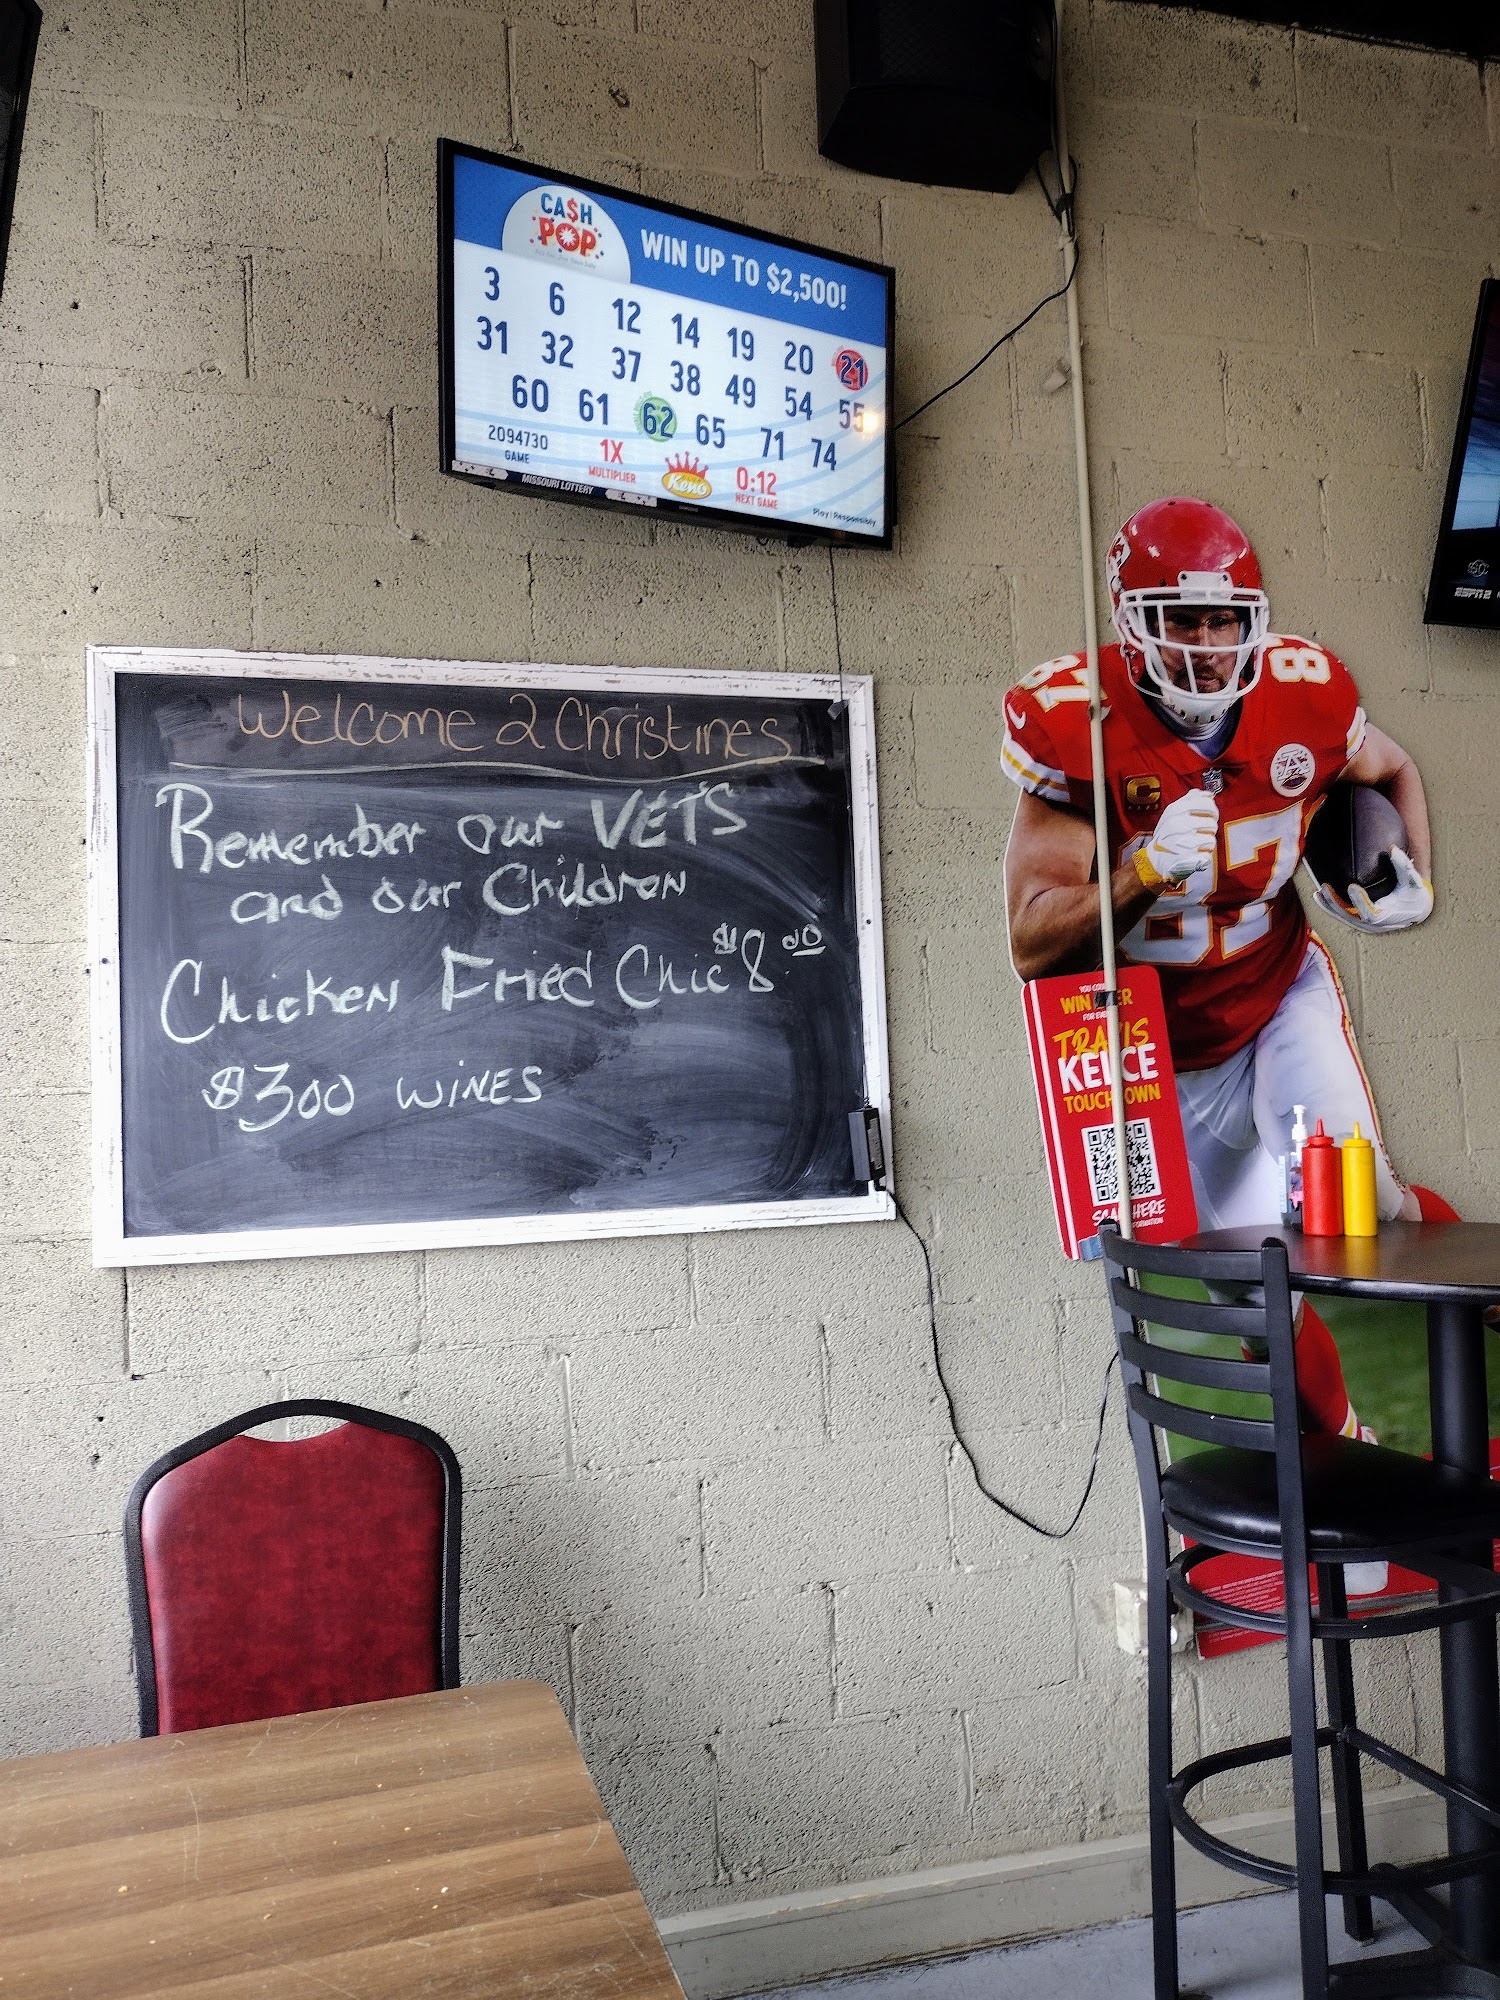 CA$H
POP
WIN UP TO $2,500!
3 6 12 14 19 20 21
31 32 37 38 49 54 55
60 61 62 65 71 74
2094730
GAME
1X
MULTIPLIER
Keno
0:12
NEXT GAME
MISSOURI LOTTERY
Play Responsibly
ESPN2
Welcome 2 Christines
Remember our VETS
and our Children
Chicken Fried Chic $8.00
$300 WINES
87
87
C
87
WIN
TRAVIS
KELCE
TOUCHDOWN
SCAN HERE